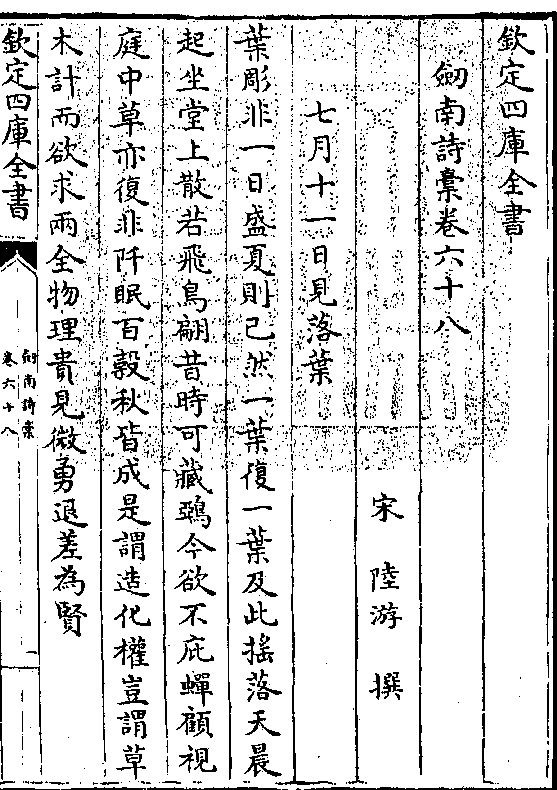 欽定四庫全書
劒南詩稾卷六十八
宋　陸游　撰
七月十一日見落葉
葉彫非一日盛夏則已然一葉復一葉及此揺落天晨
起坐堂上散若飛鳥翩昔時可藏鵶今欲不庇蟬顧視
庭中草亦復非阡眠百穀秋皆成是謂造化權豈謂草
木計而欲求兩全物理貴見微勇退差為賢
欽定四庫全書
劒南詩稾
卷六十八